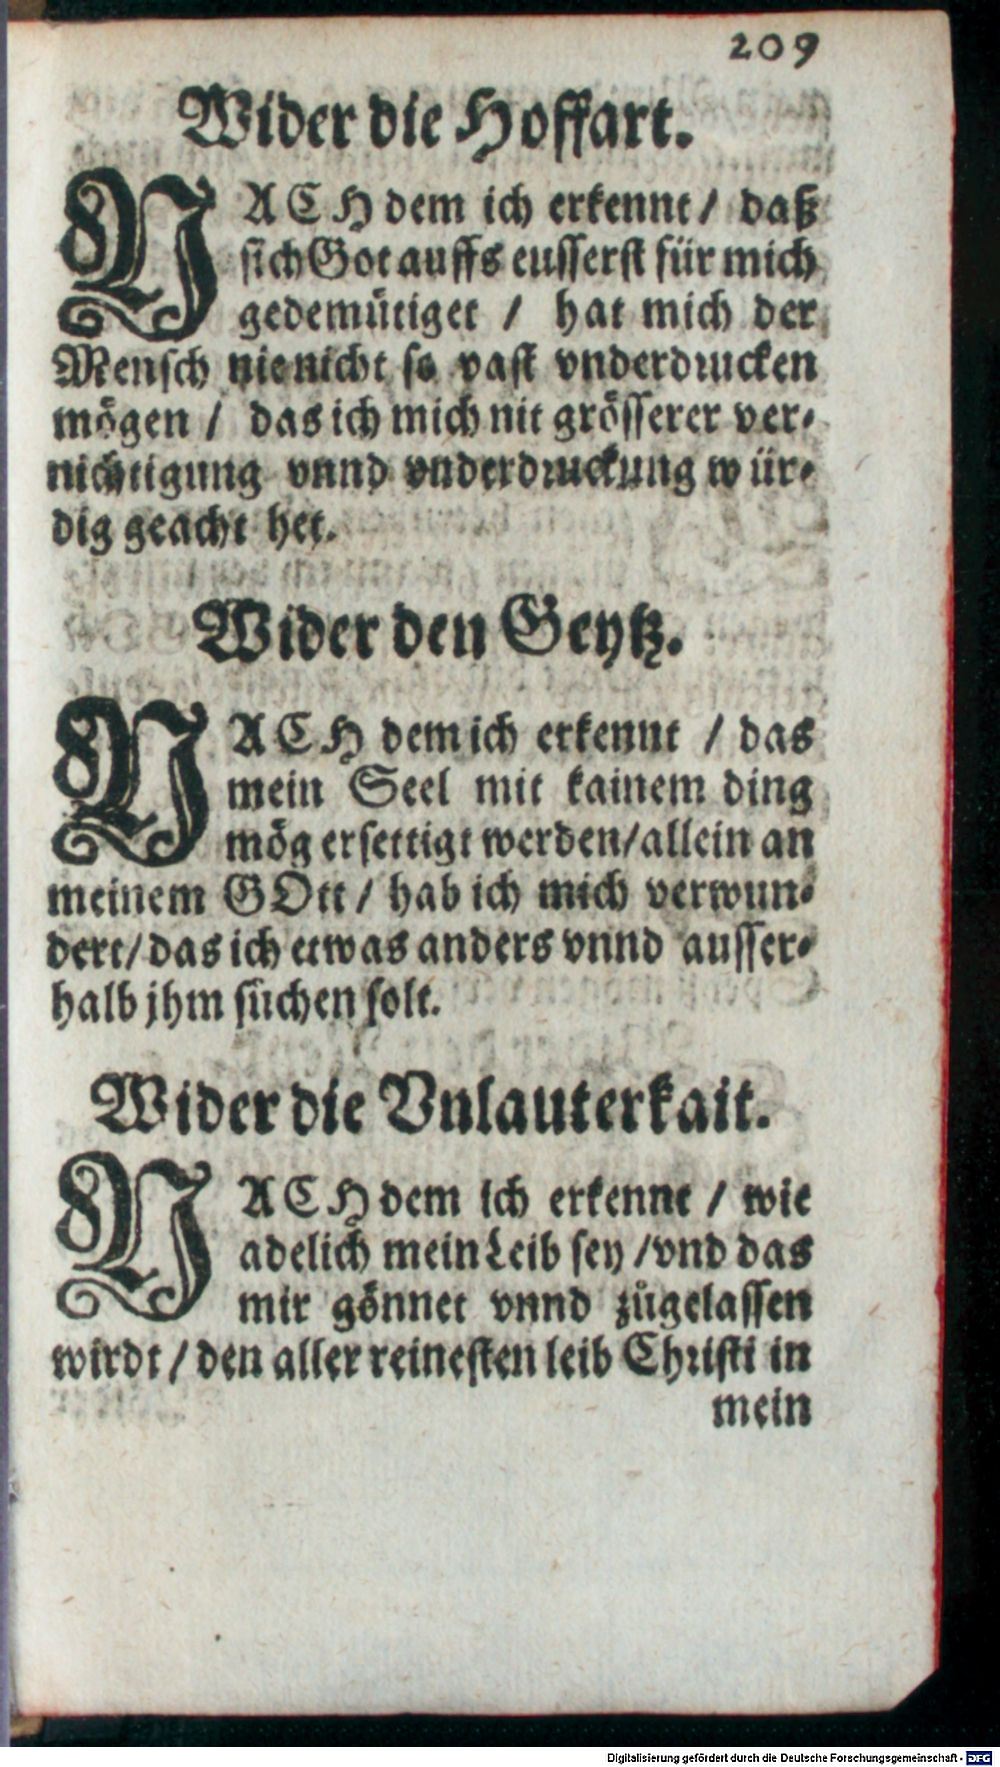 209
Wider die Hoffart.
NACH dem ich erkennt / daß
sich Got auffs eusserst für mich
gedemütiget / hat mich der
Mensch nie nicht so vast vnderdrucken
mögen / das ich mich nit grösserer ver-
nichtigung vnnd vnderdruckung wür-
dig geacht het.
Wider den Geytz.
NACH dem ich erkennt / das
mein Seel mit kainem ding
mög ersettigt werden / allein an
meinem GOtt / hab ich mich verwun-
dert / das ich etwas anders vnnd ausser-
halb jhm süchen solt.
Wider die Vnlauterkait.
NACH dem ich erkenne / wie
adelich mein Leib sey / vnd das
mir gönnet vnnd zůgelassen
wirdt / den aller reinesten leib Christi in
mein
Digitalisierung gefördert durch die Deutsche Forschungsgemeinschaft - DFG